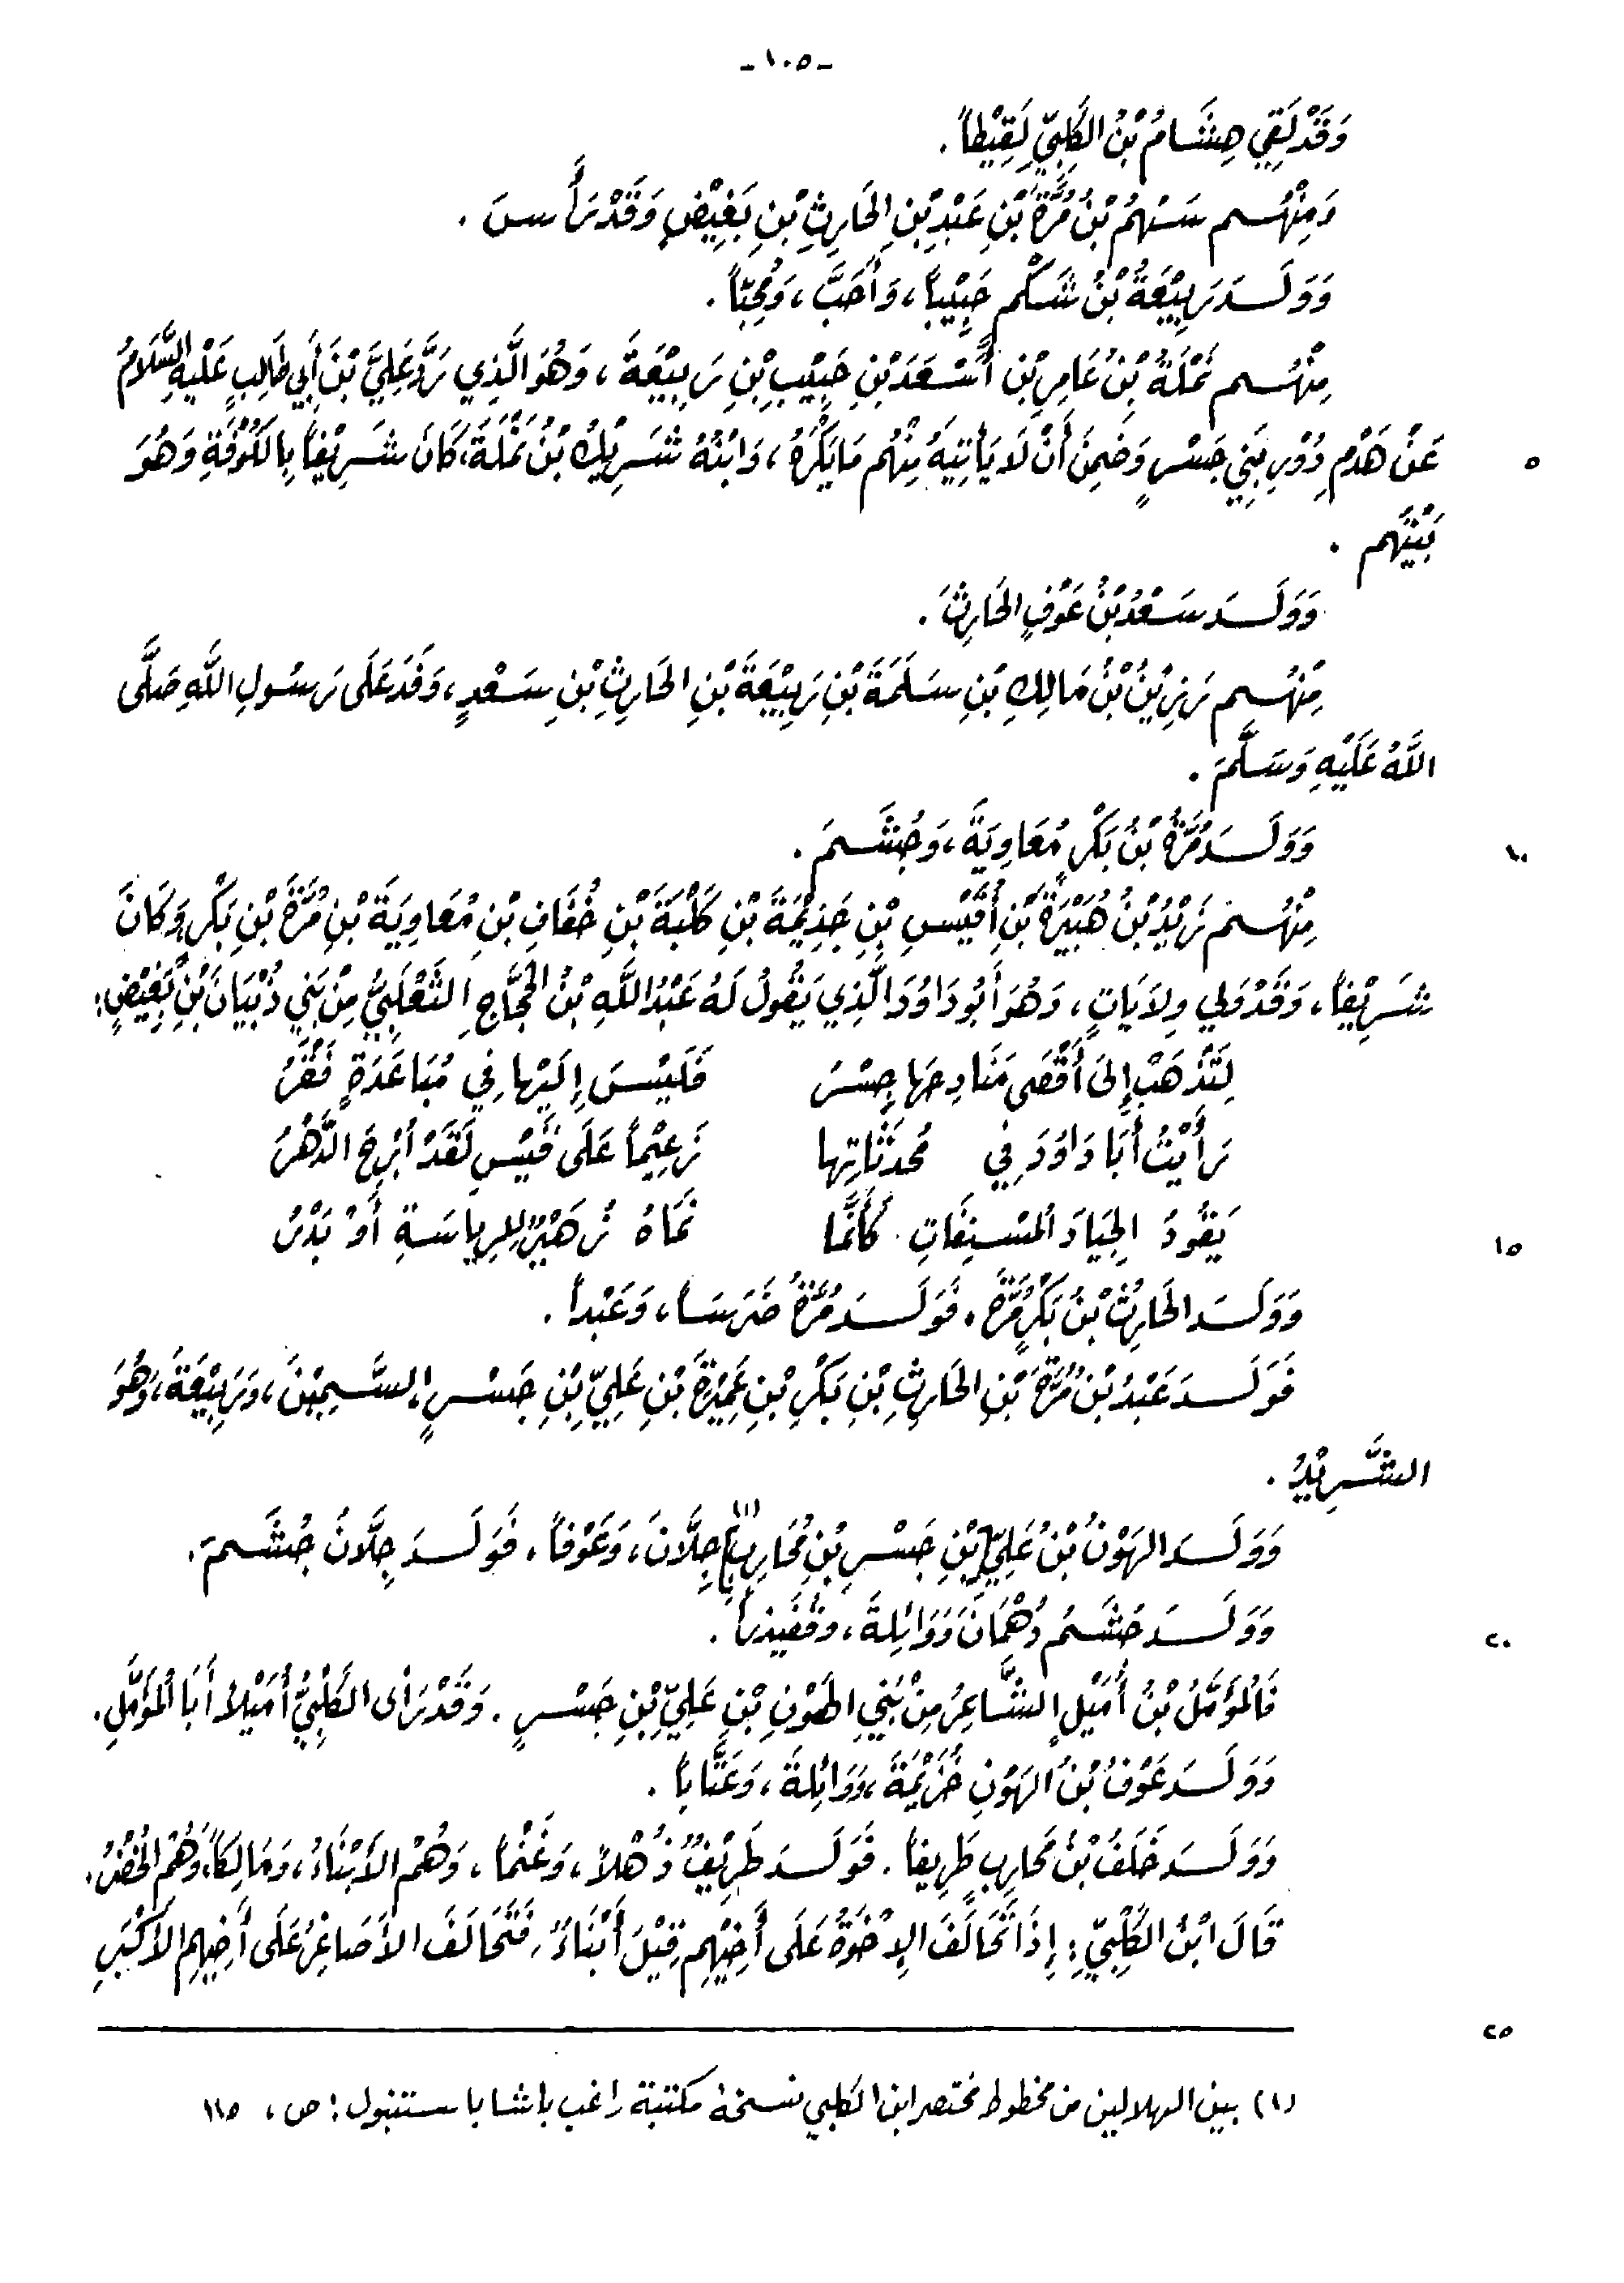 -١٠٥-
وَقَدْ لَقِيَ هِشَامُ بْنُ الكَلْبِيِّ لَقِيْطاً .
وَمِنْهُم سَهْمُ بْنُ مُرَّةَ بْنِ عَبْدِ بْنِ الحَارِثِ بْنِ بَغِيْضٍ وَقَدْ رَأَسَ .
وَوَلَدَ رَبِيْعَةُ بْنُ شَكْمٍ حَبِيْباً ، وَأَحَبَّ ، وَمُحِبّاً .
مِنْهُم نَمْلَةُ بْنُ عَامِرِ بْنِ أَسْعَدَ بْنِ حَبِيْبِ بْنِ رَبِيْعَةَ ، وَهُوَ الَّذِي رَدَّ عَلِيَّ بْنَ أَبِي طَالِبٍ عَلَيْهِ السَّلَامُ
٥ عَنْ هَدْمِ دُوْرِ بَنِي جَسْرٍ وَضَمِنَ أَنْ لَا يَأْتِيَهُ مِنْهُم مَا يَكْرَهُ ، وَابْنُهُ شَرِيْكُ بْنُ نَمْلَةَ، كَانَ شَرِيْفاً بِالكُوْفَةِ وَهُوَ
بَيْتُهُم .
وَوَلَدَ سَعْدُ بْنُ عَوْفٍ الحَارِثَ .
مِنْهُم رَزِيْنُ بْنُ مَالِكِ بْنِ سَلَمَةَ بْنِ رَبِيْعَةَ بْنِ الحَارِثِ بْنِ سَعْدٍ ، وَفَدَ عَلَى رَسُولِ اللَّهِ صَلَّى
اللَّهُ عَلَيْهِ وَسَلَّمَ .
١٠ وَوَلَدَ مُرَّةُ بْنُ بَكْرٍ مُعَاوِيَةَ ، وَجُشَمَ .
مِنْهُم زَيْدُ بْنُ هُبَيْرَةَ بْنِ أُقَيْسِ بْنِ جَذِيْمَةَ بْنِ كَلْبَةَ بْنِ خُفَافِ بْنِ مُعَاوِيَةَ بْنِ مُرَّةَ بْنِ بَكْرٍ، وَكَانَ
شَرِيْفاً ، وَقَدْ وَلِي وِلَايَاتٍ ، وَهُوَ أَبُو دَاوُدَ الَّذِي يَقُولُ لَهُ عَبْدُ اللَّهِ بْنُ الحَجَّاجِ الثَّعْلَبِيُّ مِنْ بَنِي ذُبْيَانَ بْنِ بَغِيْضٍ :
لِتَذْهَبْ إِلَى أَقْصَى مَنَادِحِهَا جِسْرُ فَلَيْسَ إِلَيْهَا فِي مُبَاعَدَةٍ فَقْرُ
رَأَيْتُ أَبَا دَاوُدَ فِي مُحْدَثَاتِهَا زَعِيْماً عَلَى قَيْسٍ لَقَدْ أَبْرَحَ الدَّهْرُ
١٥ يَقُودُ الجِيَادَ المُسْنِفَاتِ كَأَنَّمَا نَمَاهُ زُهَيْرٌ لِلرِيَاسَةِ أَوْ بَدْرُ
وَوَلَدَ الحَارِثُ بْنُ بَكْرٍ مُرَّةَ . فَوَلَدَ مُرَّةُ ضَرَسَاً ، وَعَبْداً .
فَوَلَدَ عَبْدُ بْنُ مُرَّةَ بْنِ الحَارِثِ بْنِ بَكْرِ بْنِ عَمِيْرَةَ بْنِ عَلِيِّ بْنِ جَسْرٍ السَّمِيْنَ ، وَرَبِيْعَةَ ، وَهُوَ
الشَّرِيْدُ .
وَوَلَدَ الهَوْنُ بْنُ عَلِيِّ [بْنِ جَسْرِ بْنِ مُحَارِبٍ](١) جِلَّانَ ، وَعَوْفاً . فَوَلَدَ جِلَّانُ جُشَمَ .
٢٠ وَوَلَدَ جُشَمُ دُهْمَانَ وَوَائِلَةَ ، وقُفَيْذاً .
فَالمُؤَمَّلُ بْنُ أُمَيْلٍ الشَّاعِرُ مِنْ بَنِي الهَوْنِ بْنِ عَلِيِّ بْنِ جَسْرٍ . وَقَدْ رَأَى الكَلْبِيُّ أُمَيْلاً أَبَا المُؤَمَّلِ .
وَوَلَدَ عَوْفُ بْنُ الهَوْنِ خُزَيْمَةَ ، وَوَائِلَةَ ، وَعَتَّاباً .
وَوَلَدَ خَلَفُ بْنُ مُحَارِبٍ طَرِيفاً . فَوَلَدَ طَرِيْفٌ ذُهْلاً ، وَغَنْماً ، وَهُمُ الأَبْنَاءُ ، وَمَالِكاً وَهُمُ الخُضْرُ .
قَالَ ابْنُ الكَلْبِيِّ : إِذَا تَحَالَفَ الإِخْوَةُ عَلَى أَخِيْهِم قِيْلَ أَبْنَاءٌ . فَتَحَالَفَ الأَصَاغِرُ عَلَى أَخِيهِمِ الأَكْبَرِ
٢٥
(١) بين الهلالين من مخطوط مختصر ابن الكلبي نسخة مكتبة راغب باشا باستنبول : ص ، ١١٥